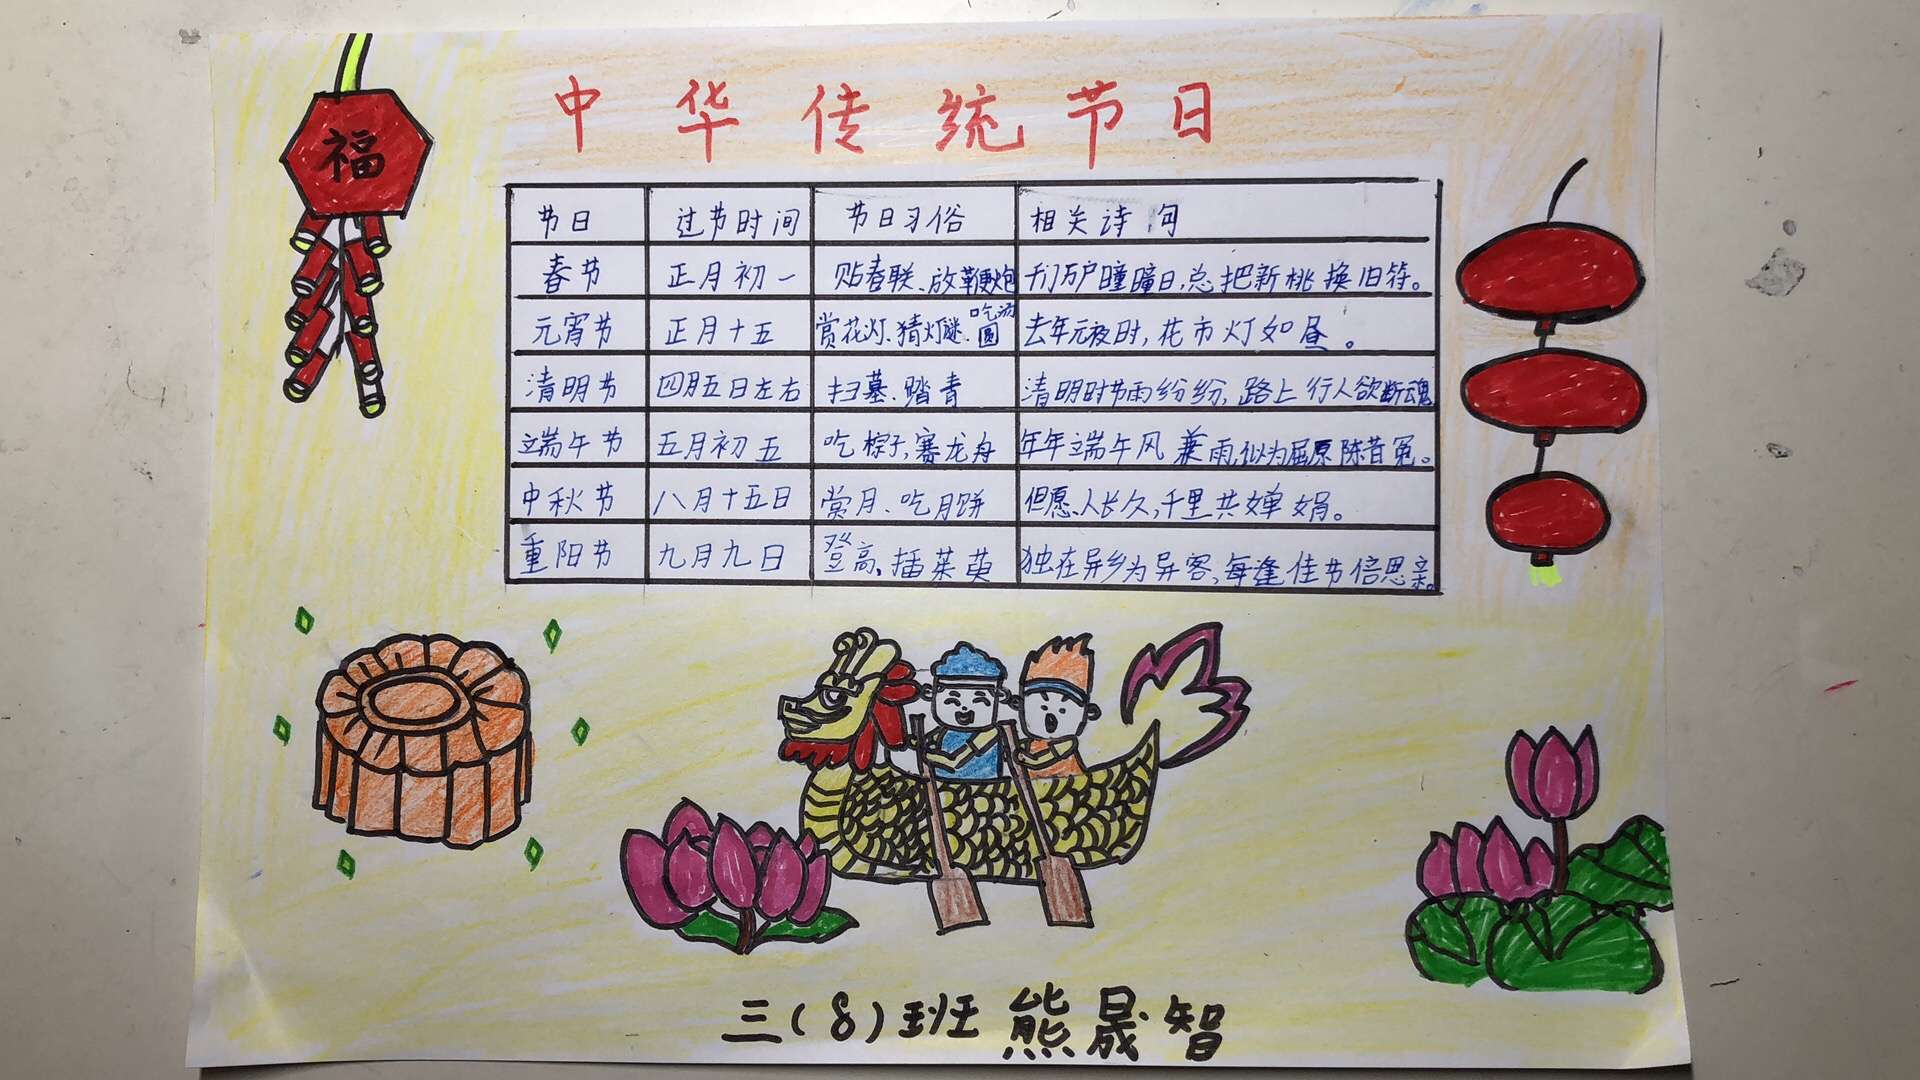 中华传统节日
福
节日 过节时间 节日习俗 相关诗句
春节 正月初一 贴春联、放鞭炮 千门万户曈曈日,总把新桃换旧符。
元宵节 正月十五 赏花灯、猜灯谜、吃汤圆 去年元夜时,花市灯如昼。
清明节 四月五日左右 扫墓、踏青 清明时节雨纷纷,路上行人欲断魂
端午节 五月初五 吃粽子,赛龙舟 年年端午风兼雨,似为屈原陈昔冤。
中秋节 八月十五日 赏月、吃月饼 但愿人长久,千里共婵娟。
重阳节 九月九日 登高、插茱萸 独在异乡为异客,每逢佳节倍思亲。
三(8)班 熊晟智